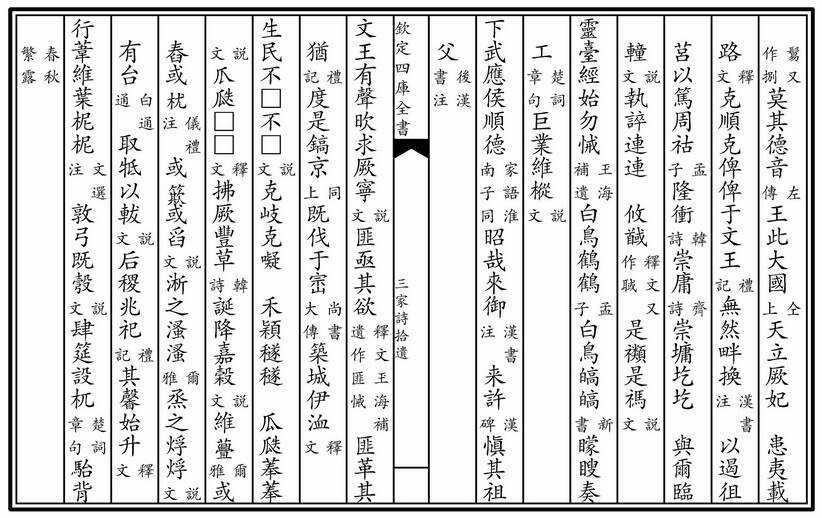 鬄又作捌莫其德音左傳王此大國仝上天立厥妃 患夷載
路釋文克順克俾俾于文王禮記無然畔換漢書注以遏徂
莒以篤周祜孟子隆衝韓詩崇庸齊詩崇墉圪圪 與爾臨
䡴說文執誶連連 攸馘釋文又作聝是禷是禡說文
靈臺經始勿悈王海補遺白鳥鶴鶴孟子白鳥皜皜新書矇瞍奏
工楚詞章句巨業維樅說文
下武應侯順德家語淮南子同昭哉來御漢書注来許漢碑慎其祖
父後漢書注
欽定四庫全書 三家詩拾遺
文王有聲欥求厥寧說文匪亟其欲釋文王海補遺作匪悈匪革其
猶禮記度是鎬京同上既伐于密尚書大傳築城伊洫釋文
生民不□不□說文克岐克㘈 禾穎穟穟 瓜瓞菶菶
說文瓜瓞□□釋文拂厥豐草韓詩誕降嘉穀說文維虋爾雅或
舂或枕儀禮注或簸或舀說文淅之溞溞爾雅烝之烰烰說文
有台白通通取羝以軷說文后稷兆祀禮記其馨始升釋文
行葦維葉柅柅文選注敦弓既彀說文肆筵設机楚詞章句駘背
春秋繁露